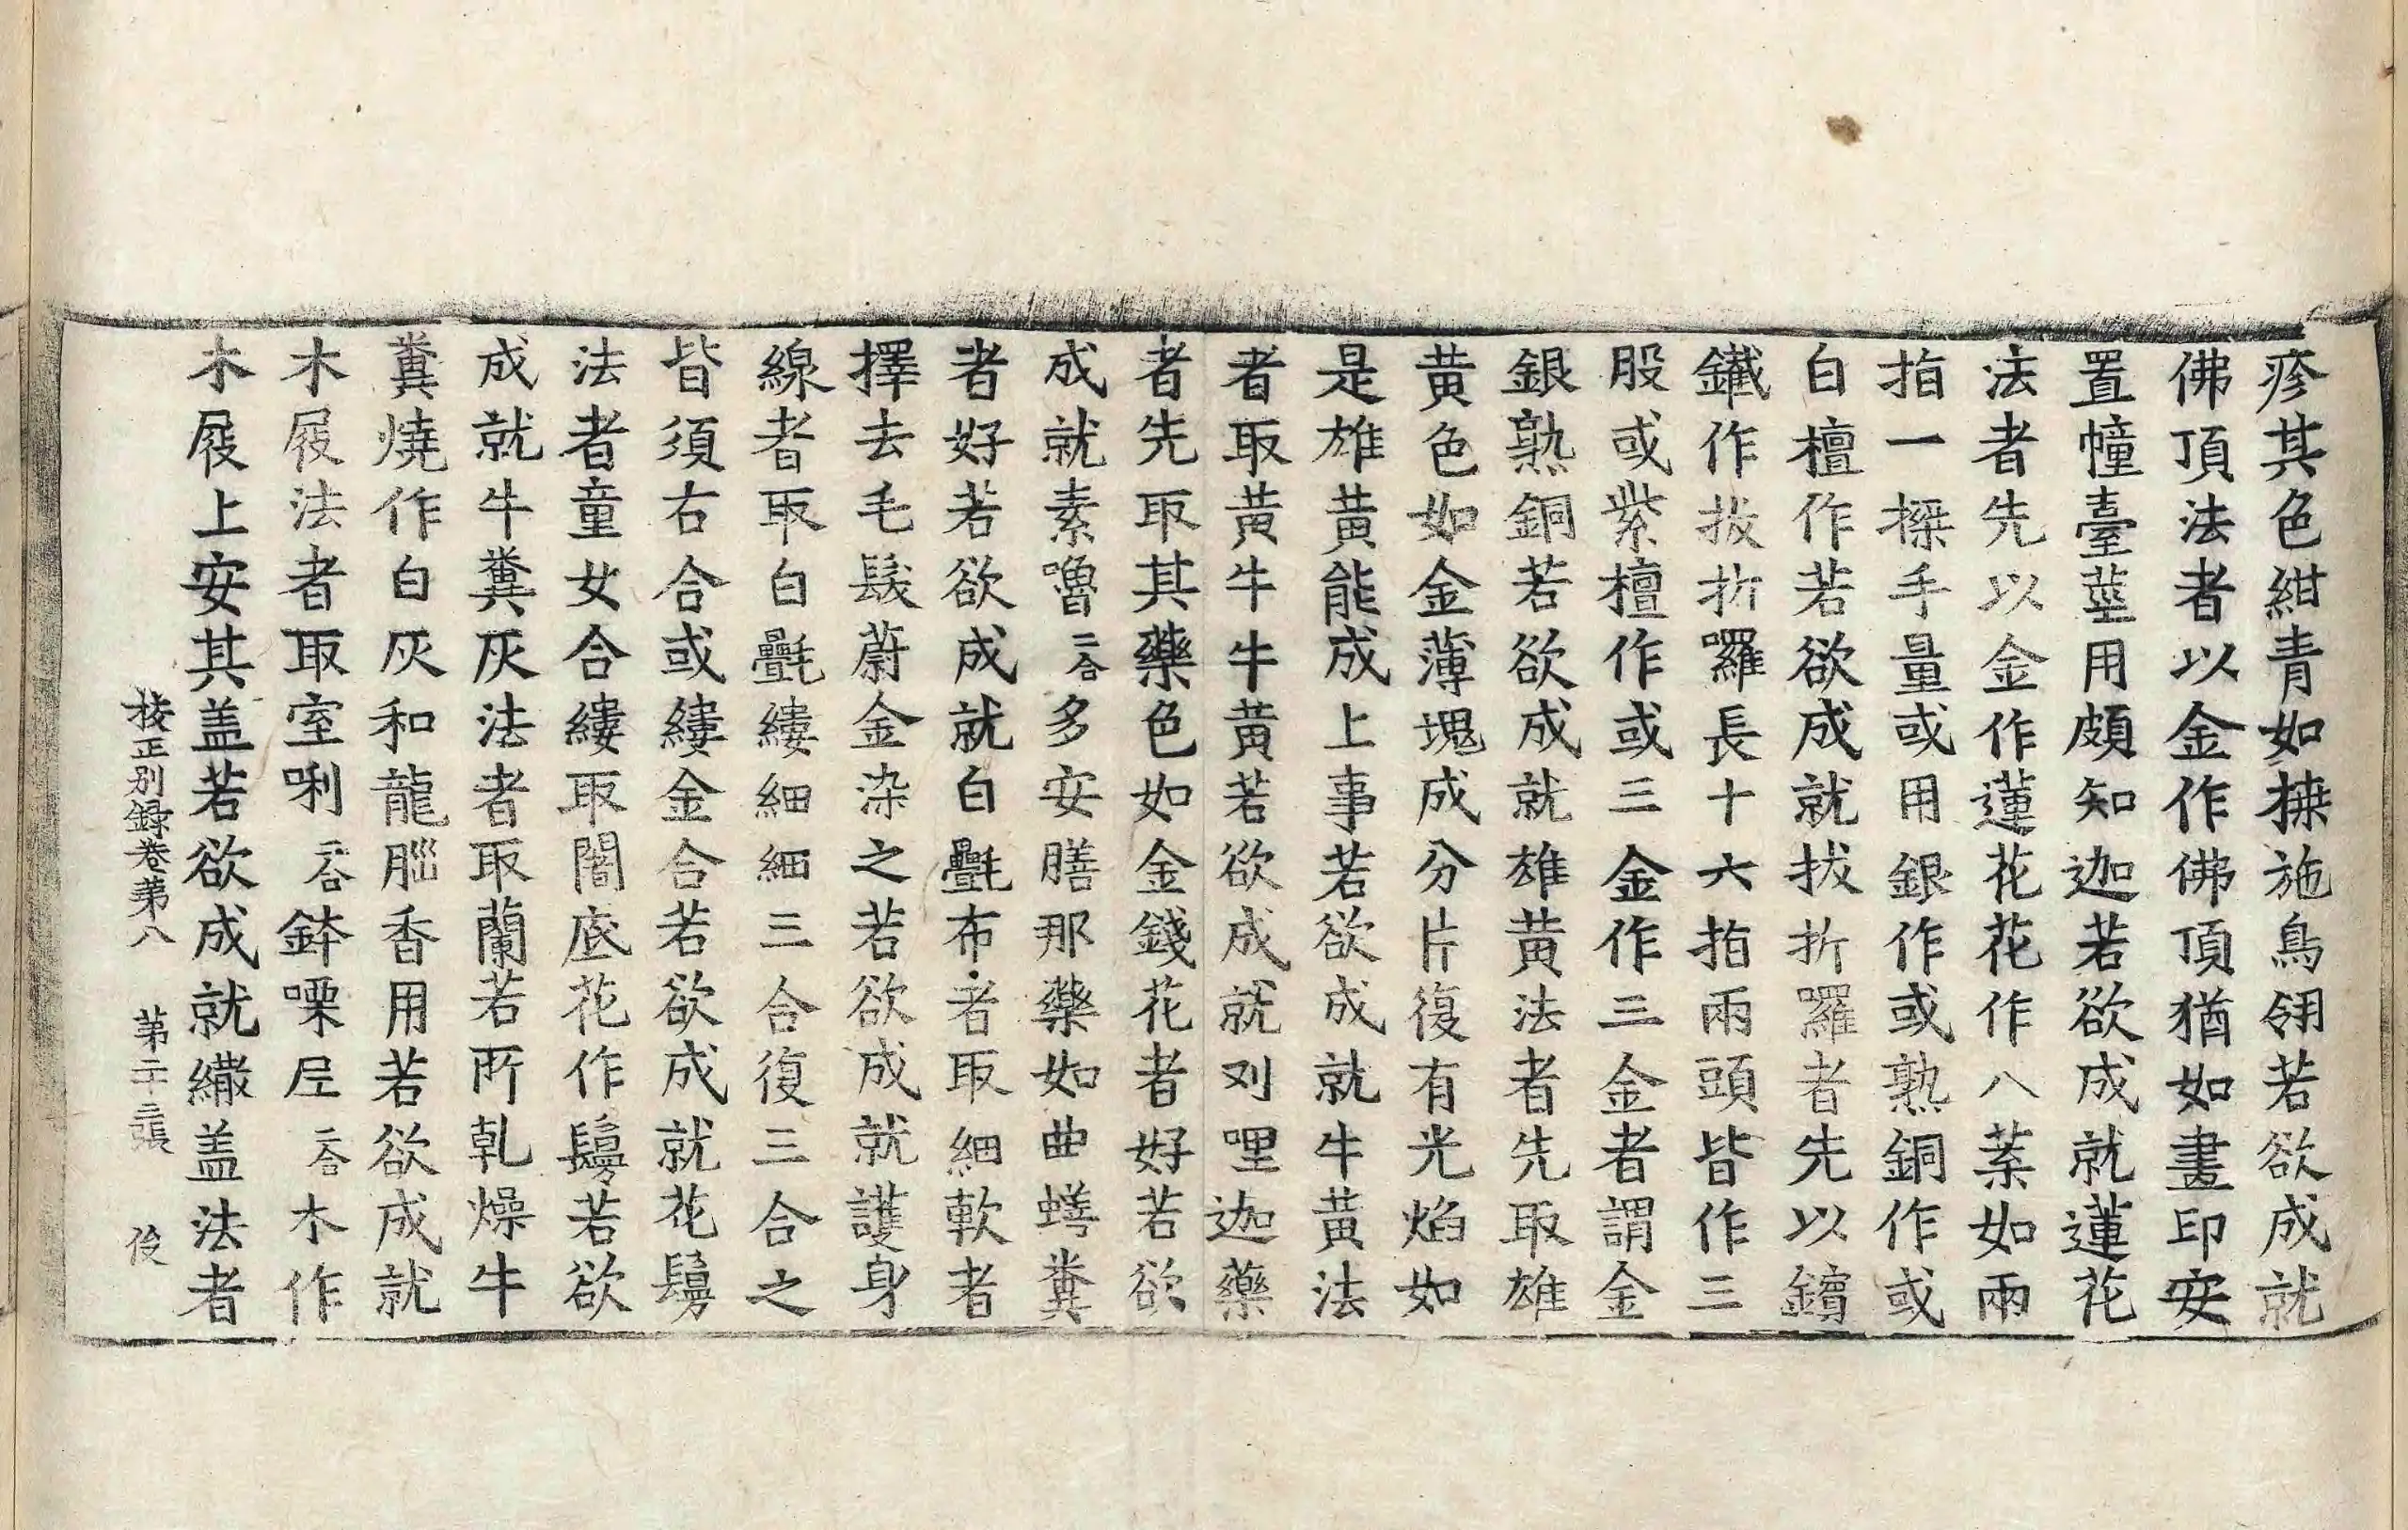 疹其色紺青如㨋施鳥翎若欲成就
佛頂法者以金作佛頂猶如畫印安
置幢臺莖用頗知迦若欲成就蓮花
法者先以金作蓮花花作八葉如兩
指一搩手量或用銀作或熟銅作或
白檀作若欲成就拔折囉者先以鑌
鐵作拔折囉長十六指兩頭皆作三
股或紫檀作或三金作三金者謂金
銀熟銅若欲成就雄黃法者先取雄
黃色如金薄塊成分片復有光焰如
是雄黃能成上事若欲成就牛黃法
者取黃牛牛黃若欲成就刈哩迦藥
者先取其藥色如金錢花者好若欲
成就素嚕二合多安膳那藥如曲蟮糞
者好若欲成就白㲲布者取細軟者
擇去毛髮蔚金染之若欲成就護身
線者取白㲲縷細細三合復三合之
皆須右合或縷金合若欲成就花鬘
法者童女合縷取闍底花作鬘若欲
成就牛糞灰法者取蘭若所乹燥牛
糞燒作白灰和龍腦香用若欲成就
木屐法者取室唎二合鉢㗚尼二合木作
木屐上安其盖若欲成就繖盖法者
校正別錄卷第八 第二十三張 俊